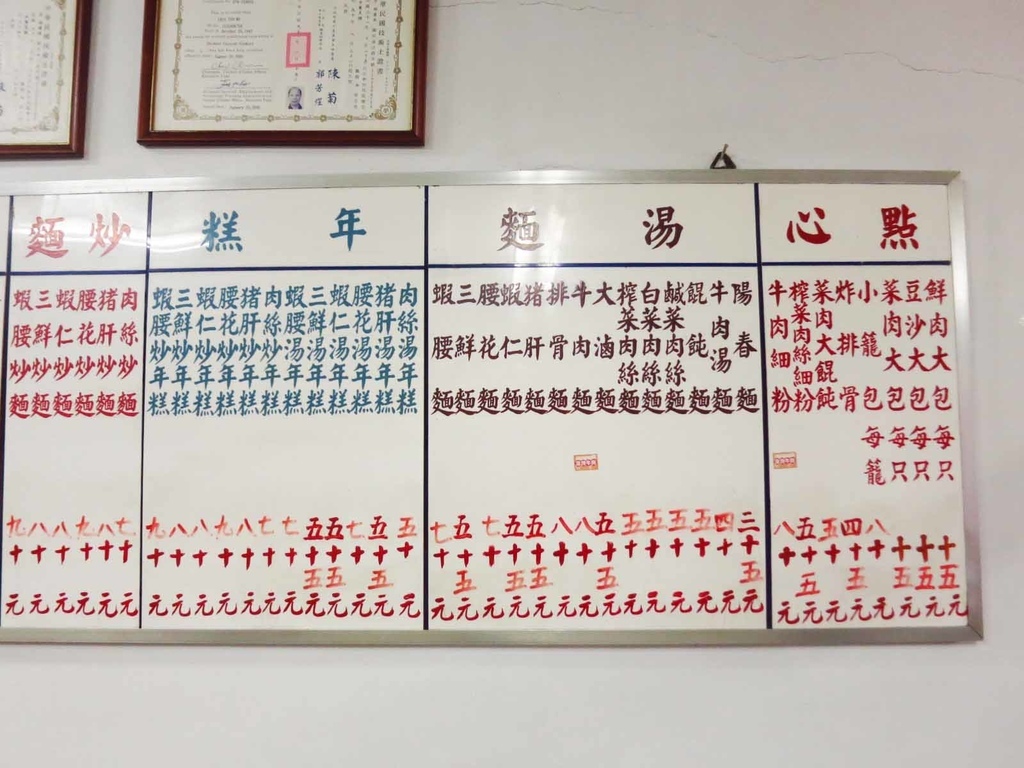 中華民國技術士證書
陳菊
點心
鮮肉大包每只 十五元
豆沙大包每只 十五元
菜肉大包每只 十五元
小籠包每籠 八十元
炸排骨 四十五元
菜肉大餛飩 五十元
榨菜肉絲細粉 五十五元
牛肉細粉 八十元
湯麵
陽春麵 三十五元
牛肉湯麵 四十元
餛飩麵 五十元
鹹菜肉絲麵 五十元
白菜肉絲麵 五十元
榨菜肉絲麵 五十元
大滷麵 五十五元
牛肉麵 八十元
排骨麵 八十元
猪肝麵 五十五元
蝦仁麵 五十五元
腰花麵 七十元
三鮮麵 五十五元
蝦腰麵 七十元
年糕
肉絲湯年糕 五十元
猪肝湯年糕 五十五元
腰花湯年糕 七十元
蝦仁湯年糕 五十五元
三鮮湯年糕 五十五元
蝦腰湯年糕 七十元
肉絲炒年糕 七十元
猪肝炒年糕 八十元
腰花炒年糕 九十元
蝦仁炒年糕 八十元
三鮮炒年糕 八十元
蝦腰炒年糕 九十元
炒麵
肉絲炒麵 七十元
猪肝炒麵 八十元
腰花炒麵 九十元
蝦仁炒麵 八十元
三鮮炒麵 八十元
蝦腰炒麵 九十元